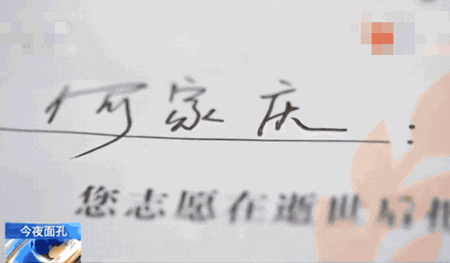 何家庆：
您志愿在逝世后
今夜面孔